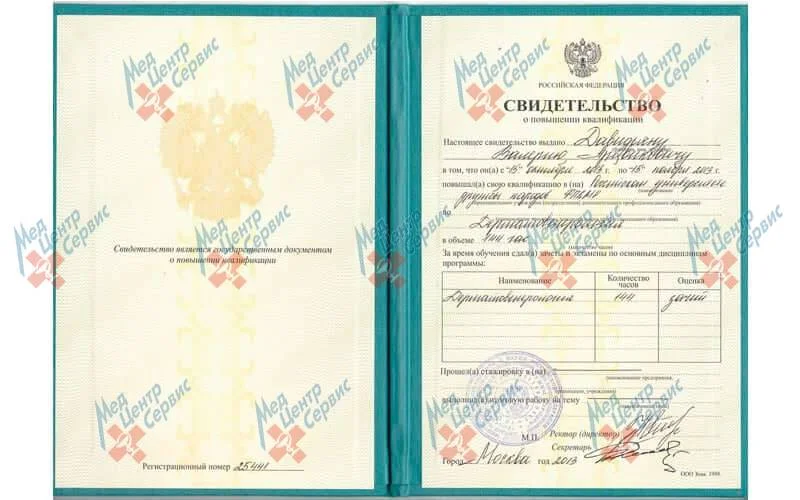 Свидетельство является государственным документом
о повышении квалификации
Регистрационный номер 25441
РОССИЙСКАЯ ФЕДЕРАЦИЯ
СВИДЕТЕЛЬСТВО
о повышении квалификации
Настоящее свидетельство выдано Давидяну
Валерию
в том, что он(а) с «15» октября 2013 г. по «15» ноября 2013 г.
повышал(а) свою квалификацию в (на) Российском университете
дружбы народов
по Дерматовенерологии
в объеме 144 час
(количество часов)
За время обучения сдал(а) зачеты и экзамены по основным дисциплинам
программы:
Наименование Количество часов Оценка
Дерматовенерология 144 зачет
Прошел(а) стажировку в (на)
(наименование предприятия,
организации, учреждения)
выполнил(а) итоговую работу на тему
М.П.
Ректор (директор)
Секретарь
Город Москва год 2013
МедЦентрСервис